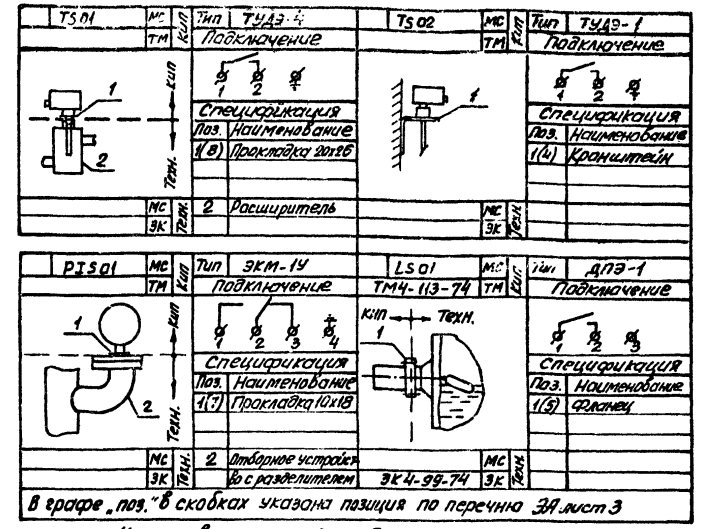 TS01 МС КИП Тип ТУДЭ-4
ТМ Подключение
1 2
Спецификация
Поз. Наименование
1(8) Прокладка 20х26
1
КИП
Техн.
2
МС Техн. 2 Расширитель
ЭК
TS02 МС КИП Тип ТУДЭ-1
ТМ Подключение
1 2
Спецификация
Поз. Наименование
1(4) Кронштейн
1
МС Техн.
ЭК
PIS01 МС КИП Тип ЭКМ-1У
ТМ Подключение
1 2 3 4
Спецификация
Поз. Наименование
1(7) Прокладка 10х18
1
КИП
Техн.
2
МС Техн. 2 Отборное устройст
ЭК во с разделителем
LS01 МС КИП Тип ДПЭ-1
ТМ4-113-74 ТМ Подключение
КИП Техн.
1
1 2 3
Спецификация
Поз. Наименование
1(5) Фланец
МС Техн.
ЗК4-99-74 ЭК
В графе „поз." в скобках указана позиция по перечню ЭА лист 3